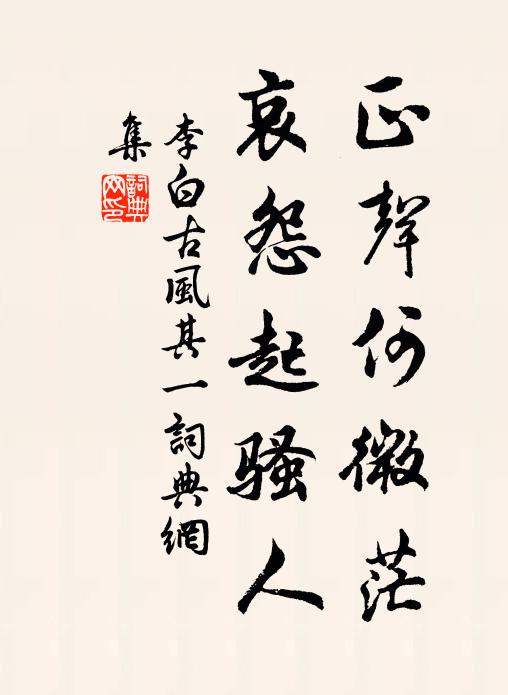 正聲何微茫
哀怨起騷人
李白古風其一詞典網
集
詞典
网印